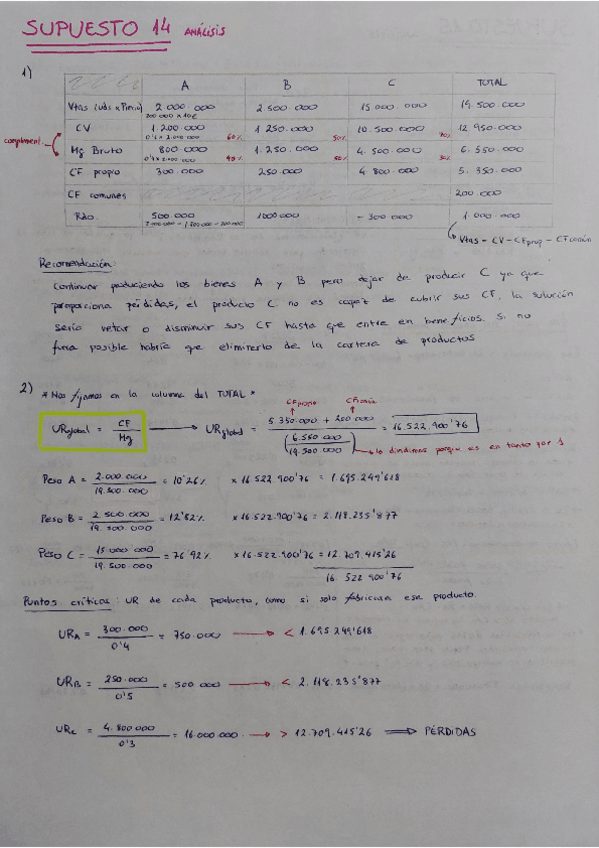 SUPUESTO 14 ANÁLISIS
1)
A B C TOTAL
Vtas (uds x Precio) 2.000.000 2.500.000 15.000.000 19.500.000
200.000 x 10€
CV 1.200.000 60% 1.250.000 50% 10.500.000 70% 12.950.000
0'6 x 2.000.000
complement.
Mg Bruto 800.000 40% 1.250.000 50% 4.500.000 30% 6.550.000
0'4 x 2.000.000
CF propio 300.000 250.000 4.800.000 5.350.000
CF comunes 200.000
Rdo. 500.000 1000000 - 300.000 1.000.000
2.000.000 - 1.200.000 - 300.000
Vtas - CV - CFprop - CFcomún
Recomendación:
Continuar produciendo los bienes A y B pero dejar de producir C ya que
proporciona pérdidas, el producto C no es capaz de cubrir sus CF, la solución
sería retar o disminuir sus CF hasta que entre en beneficios. Si no
fuera posible habría que eliminarlo de la cartera de productos
2) *Nos fijamos en la columna del TOTAL*
CFpropio CFcomún
URglobal = CF / Mg → URglobal = 5.350.000 + 200.000 / (6.550.000 / 19.500.000) = 16.522.900'76
lo dividimos porque es en tanto por 1
Peso A = 2.000.000 / 19.500.000 = 10'26% x 16.522.900'76 = 1.695.249'618
Peso B = 2.500.000 / 19.500.000 = 12'82% x 16.522.900'76 = 2.118.235'877
Peso C = 15.000.000 / 19.500.000 = 76'92% x 16.522.900'76 = 12.709.415'26
16.522.900'76
Puntos críticos: UR de cada producto, como si solo fabricara ese producto.
URA = 300.000 / 0'4 = 750.000 → < 1.695.249'618
URB = 250.000 / 0'5 = 500.000 → < 2.118.235'877
URC = 4.800.000 / 0'3 = 16.000.000 → > 12.709.415'26 ⇒ PÉRDIDAS